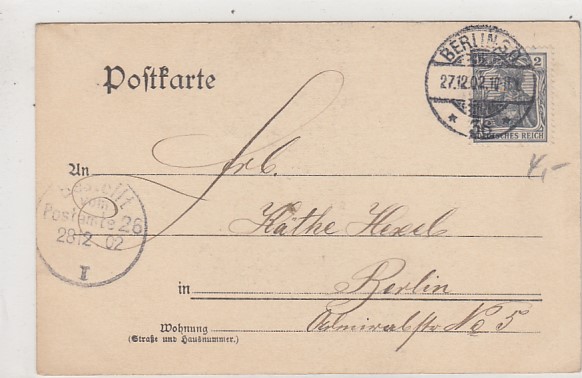 Postkarte
BERLIN S.O.
27.12.02.
* 36 *
2
DEUTSCHES REICH
4,-
An Frl.
Bestellt
vom
Postamte 26
28 12 02
I
Käthe Hexel
in Berlin
Wohnung Admiralstr No 5
(Straße und Hausnummer.)